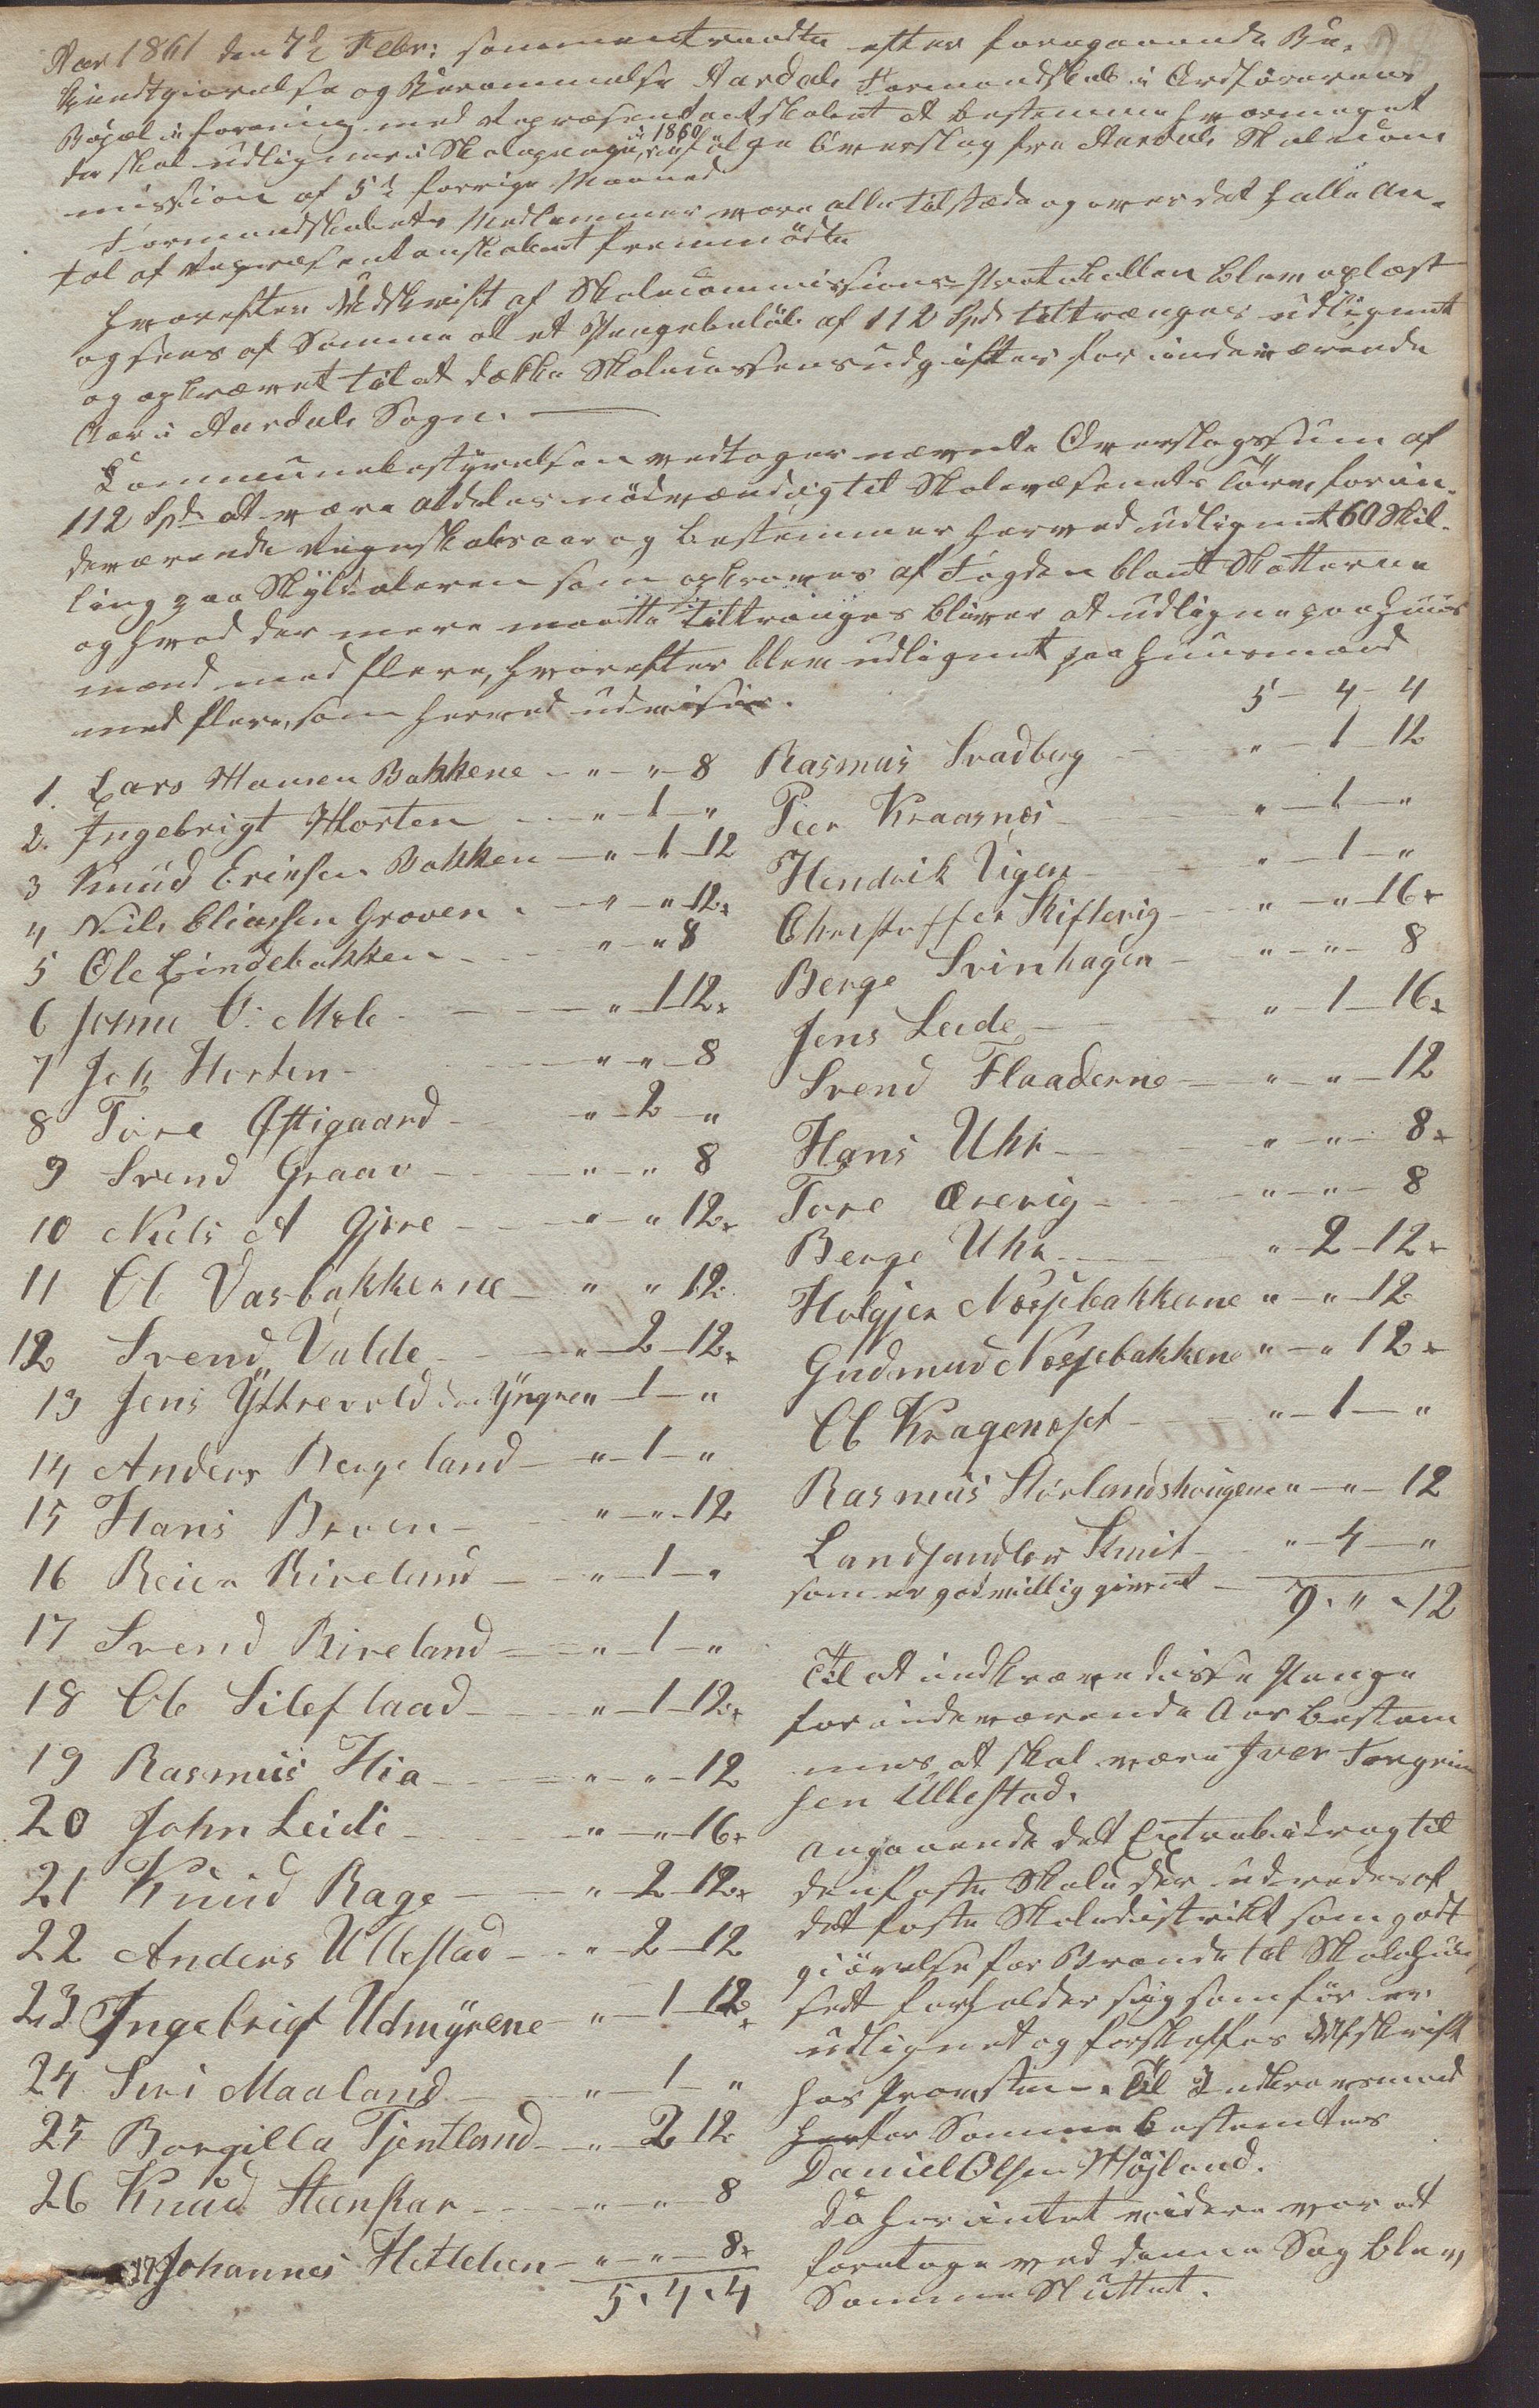 Aar 1861 den 7de Febr: sammentraadte efter foregaaende Be-
kiendtgiørelse og Berammelse Aardals Formandskab i Ordførerens
Bopæl i forening med Repræsentantskabet at bestemme hvormeget
der skal udlignes i Skolepenge, i 1860 ifølge Overslag fra Aardals Skolecom
mission af 5te forrige Maaned.
Formandskabets Medlemmer vare alle tilstæde og over det halve An-
tal af Repræsentanskabet fremmødte
hvorefter Udskrift af Skolecommissions-Protokollen blev oplæst
og sees af Samme at et Pengebeløb af 112 Spd tiltrænges udlignet
og opkrævet til at dække Skolecassens udgifter for indeværende
Aar i Aardals Sogn.
Communebestyrelsen vedtager nævnte Overslagssum af
112 Spd at være aldeles nødvændig til Skolevæsenets Tarv for in-
deværende Regnskabsaar og bestemmer herved udlignet 60 Skil-
ling paa Skylddaleren som opkræves af Fogden blant Skatterne
og hvad der mere maatte tiltrænges bliver at udligne paa Huus
mænd med flere, hvorefter blev udlignet paa Huusmænd
med flere, som herved udvises.
1. Lars Hansen Bakkene - " - " - 8
2. Ingebrigt Horten - " - 1 - "
3 Knud Eriksen Bakken - " - 1 - 12
4 Nils Eliassen Groven - " - " 12
5 Ole Lindebakken - " - " 8
6 Josne O: Mæle - " 1 12
7 Joh Horten - " - " - 8
8 Tore Østigaard - " - 2 - "
9 Svend Graav - " - " 8
10 Niels A Gjøre - " - " 12
11 Ole Vasbakkerne - " " 12
12 Svend Valde - " - 2 - 12
13 Jens Yttrevold den Yngre " - 1 - "
14 Anders Bergeland - " - 1 - "
15 Hans Broen - " - " - 12
16 Reier Riveland - " - 1 - "
17 Svend Riveland - " - 1 - "
18 Ole Sileflaad - " - 1 - 12
19 Rasmus Hia - " - " - 12
20 John Leide - " - " - 16
21 Knud Rage - " 2 - 12
22 Anders Ullestad - " - 2 - 12
23 Ingebrigt Udmyrene - " - 1 - 12
24 Siri Maaland - " - 1 - "
25 Borgilla Tjentland - " - 2 12
26 Knud Steenskar - " - " - 8
27 Johannes Hetlelien - " - " - 8
5 . 4 . 4
5 - 4 - 4
Rasmus Svadberg - " - 1 - 12
Peer Kraasnes - " - 1 - "
Hendrik Vigen - " - 1 - "
Christoffer Skiftevig - " - " - 16
Berge Svinhagen - " - " - 8
Jens Leide - " - 1 - 16
Svend Flaaderne - " - " - 12
Hans Uhr - " - " - 8
Tore Ørevig - " - " - 8
Berge Uhr - " - 2 - 12
Holgjer Næssebakkerne " - " - 12
Gudmund Næssebakkene " - " 12
Ole Kragenæset - " - 1 - "
Rasmus Størlandshougene " - " - 12
Landhandler Smit - " - 4 - "
som er godvillig givent
9 . " . 12
Til at indkræve disse Penge
for indeværende Aar bestem
mes, at skal være Iver Torgrim
sen Ullestad.
Angaaende det Extrabidrag til
den faste Skole der udredes af
det faste Skoledistrikt som godt
giørelse for Brænde til Skolehuu
set forholder sig som før er
udlignet og forskaffes Afskrift
hos Provsten. Til Indkrævsmand
herfor Samme bestemtes
Daniel Olsen Høyland.
Da her intet videre var at
foretage ved denne Sag blev
Samme Sluttet.